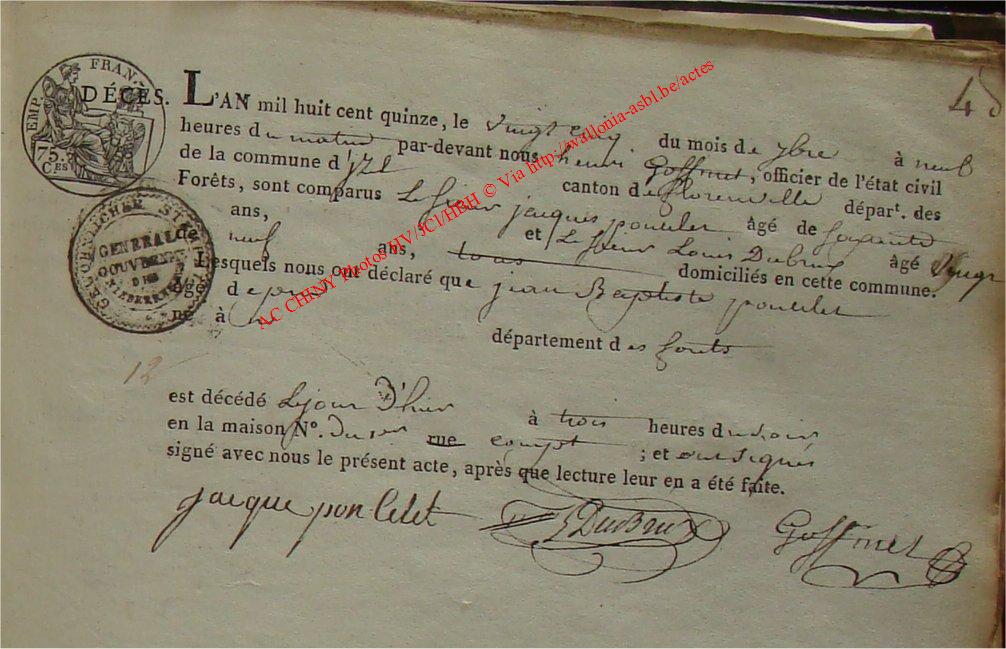 DÉCÈS. L'AN mil huit cent quinze, le vingt cinq du mois de 7bre à neuf
heures du matin par-devant nous henri Goffinet, officier de l'état civil
de la commune d'izel canton de florenville départ. des
Forêts, sont comparus Le sieur jacques poncelet âgé de soixante
ans, et Le sieur Louis Dubrux âgé vingt
de neuf ans, tous domiciliés en cette commune.
Lesquels nous ont déclaré que jean Baptiste poncelet
âgé de
né à
département des forêts
12
est décédé Le jour d'hier à trois heures du soir
en la maison N°. du sir rue ; et ont signés
signé avec nous le présent acte, après que lecture leur en a été faite.
jacque poncelet L DuBrux Goffinet
EMP. FRAN.
75.
C.ES
GENERAL
GOUVERNEM
DES
NIEDERRHEINS
AC CHINY Photos HV/JCl/HBH © Via http://wallonia-asbl.be/actes